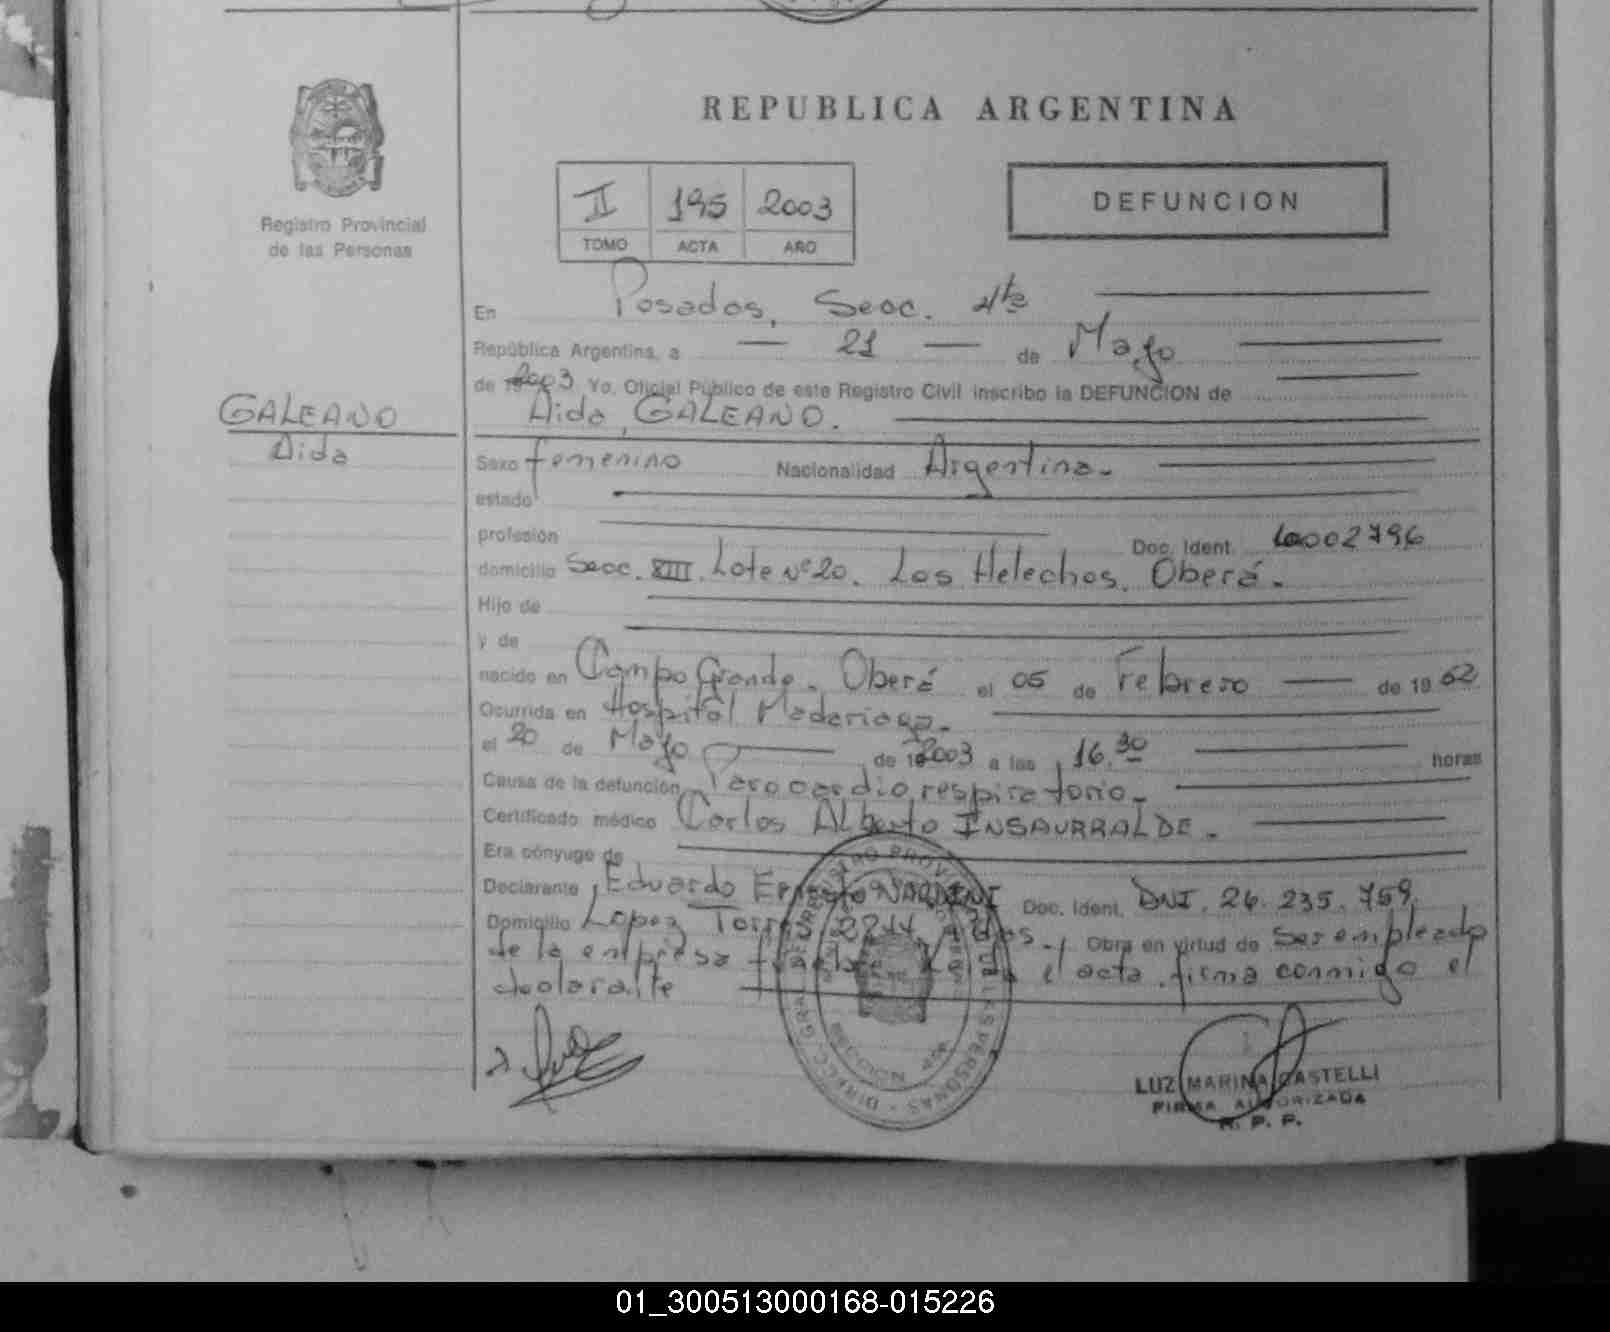 REPUBLICA ARGENTINA
Registro Provincial
de las Personas
II 195 2003
TOMO ACTA AÑO
DEFUNCION
En Posadas, Secc. 4ta
República Argentina, a 21 de Mayo
de 2003 Yo, Oficial Público de este Registro Civil inscribo la DEFUNCION de
GALEANO
Aida
Aida, GALEANO.
Sexo femenino Nacionalidad Argentina.
estado
profesión Doc. Ident.
domicilio Secc. XIII. Lote Nº 20. Los Helechos. Oberá.
Hijo de
y de
nacido en Campo Grande. Oberá el 05 de Febrero de 19 62
Ocurrida en Hospital Madariaga.
el 20 de Mayo de 2003 a las 16.30 horas
Causa de la defunción Paro cardio respiratorio.
Certificado médico Carlos Alberto INSAURRALDE.
Era cónyuge de
Declarante Eduardo Ernesto Doc. Ident. DNI. 26.235.759.
Domicilio Lopez Torres 2244 Pdas. Obra en virtud de Ser empleado
de la empresa el acta firma conmigo el
declarante
REGISTRO PROVINCIAL DE LAS PERSONAS - DIRECC. GRAL.
SECCION 4ta
LUZ MARINA CASTELLI
FIRMA AUTORIZADA
R. P. P.
01_300513000168-015226